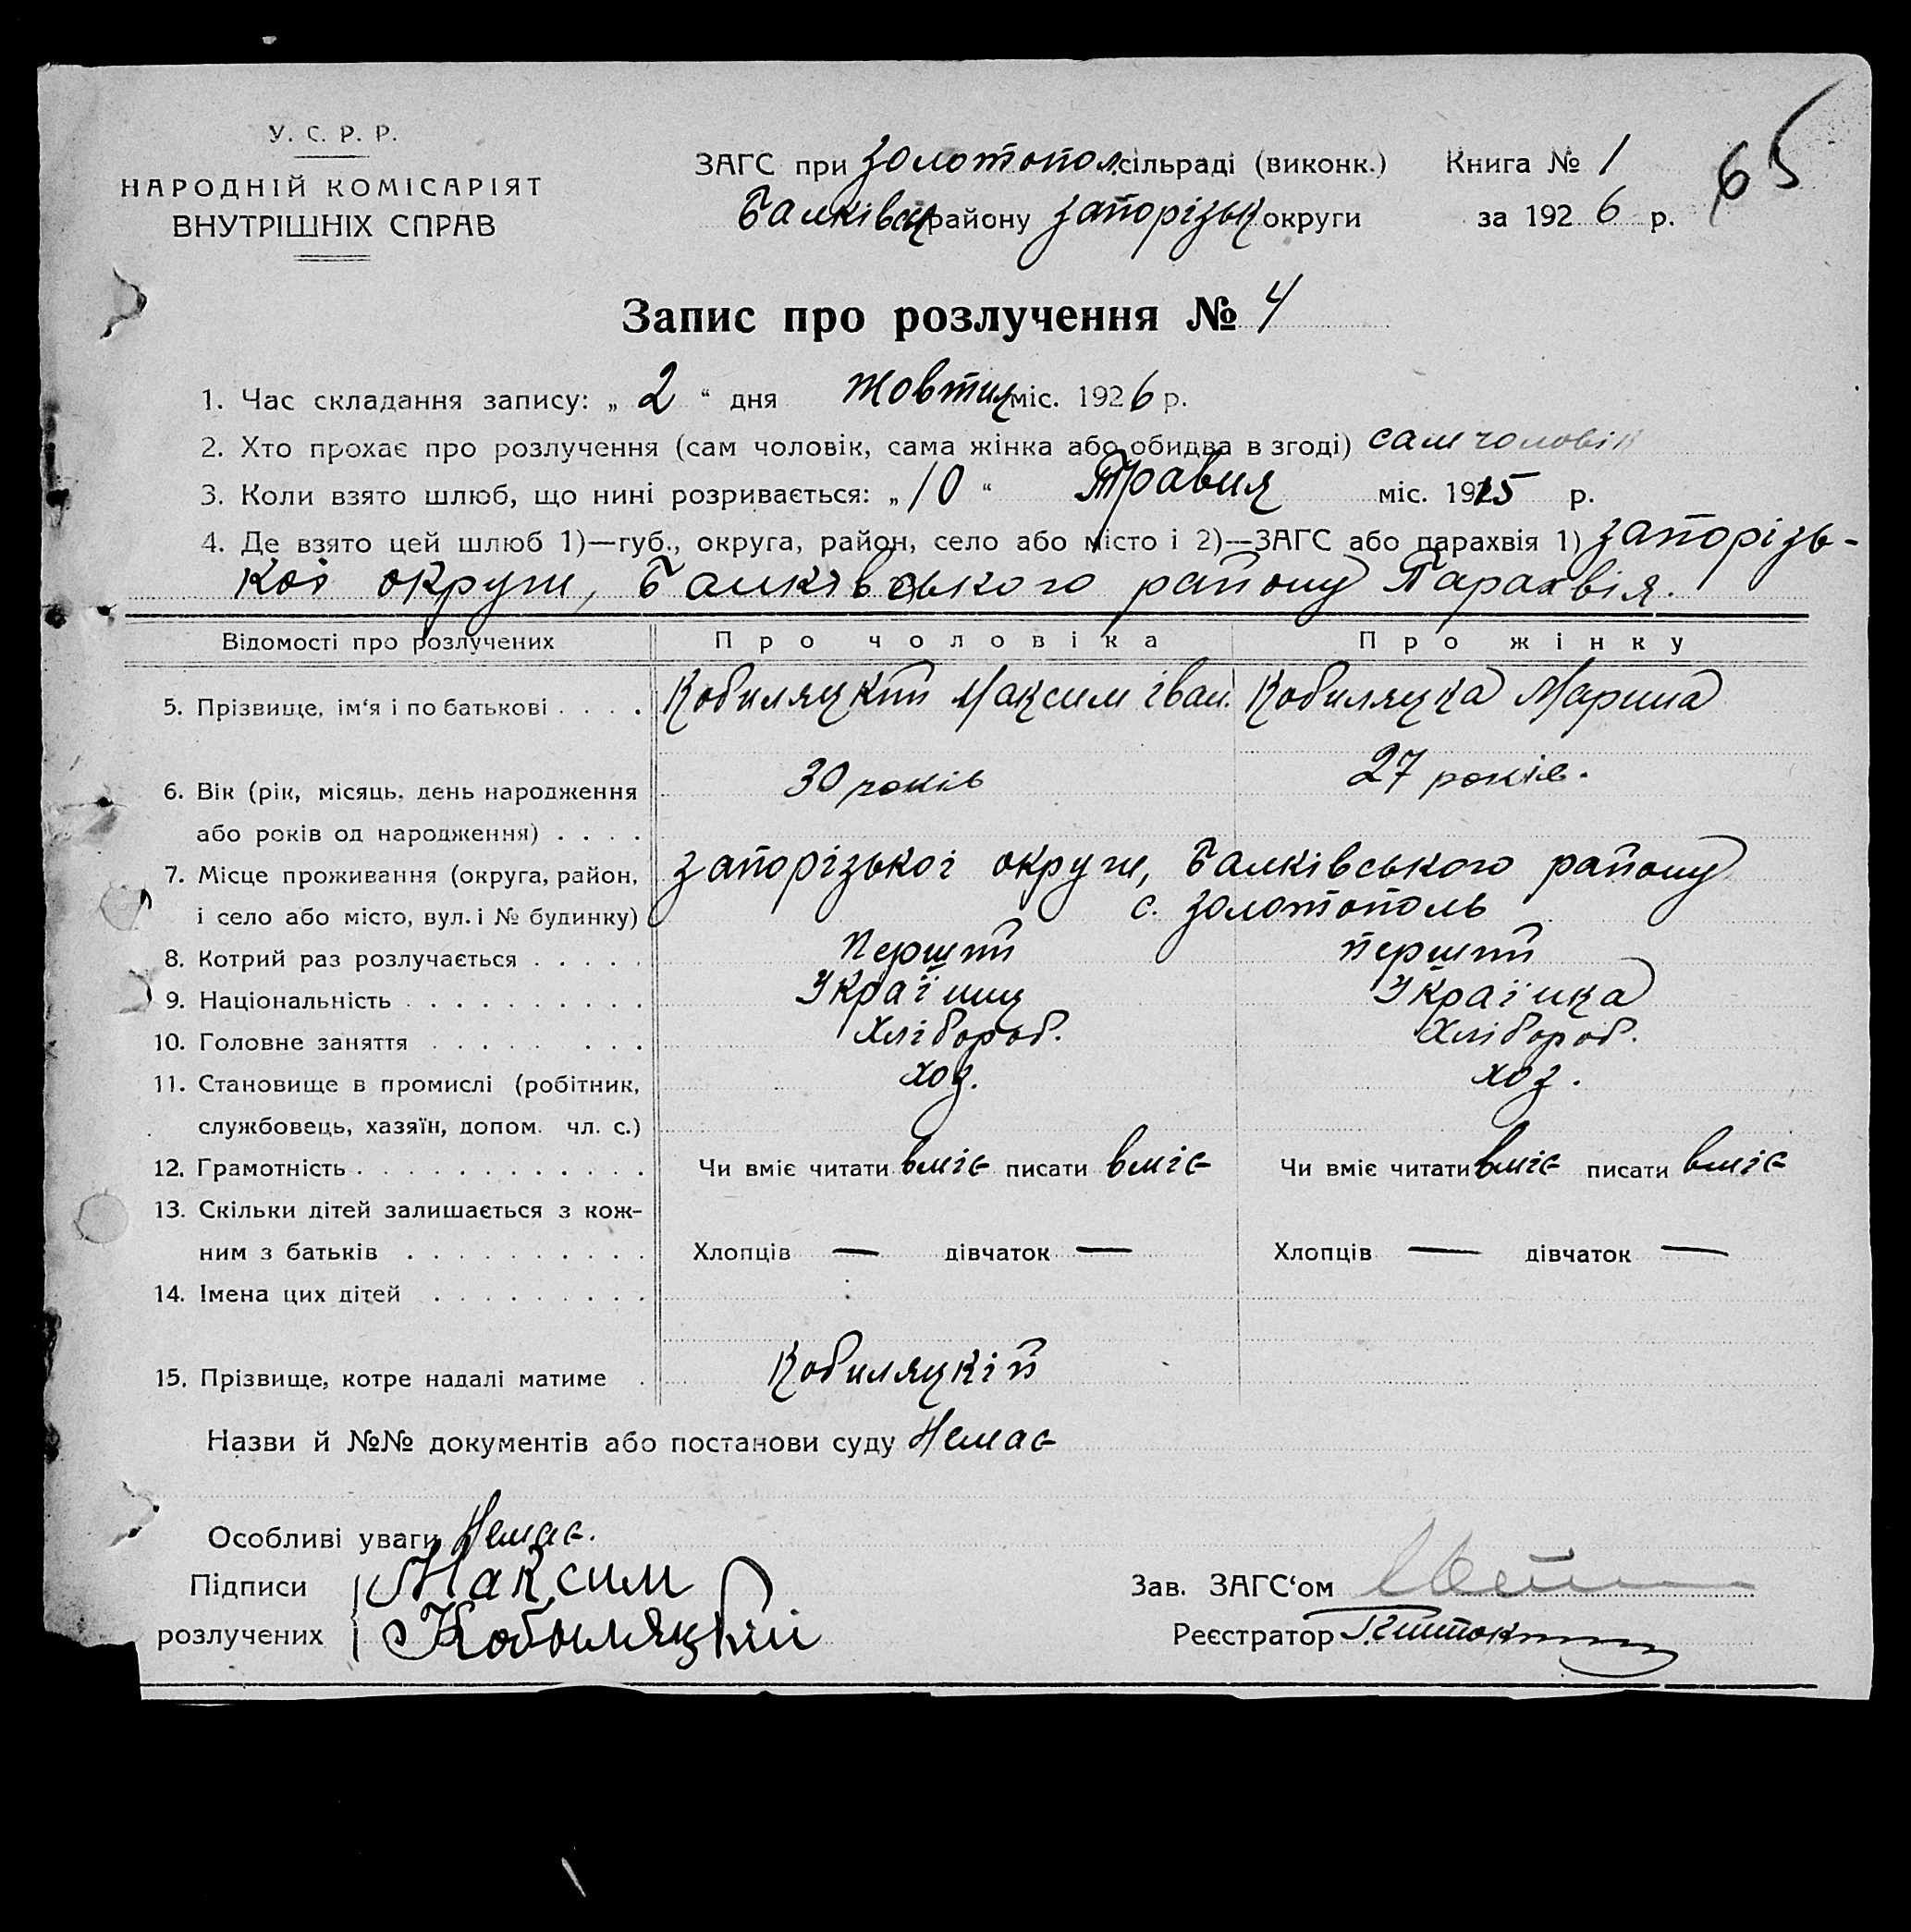 У. С. Р. Р.
НАРОДНІЙ КОМІСАРІЯТ
ВНУТРІШНІХ СПРАВ
ЗАГС при Золотопол. сільраді (виконк.) Книга № 1
65
Балківськ району Запорізьк округи за 1926 р.
Запис про розлучення № 4
1. Час складання запису: „ 2 “ дня Жовтня міс. 1926 р.
2. Хто прохає про розлучення (сам чоловік, сама жінка або обидва в згоді) сам чоловік
3. Коли взято шлюб, що нині розривається: „ 10 “ Травня міс. 1915 р.
4. Де взято цей шлюб 1)—губ., округа, район, село або місто і 2)—ЗАГС або парахвія 1) Запорізь-
коі округи, Балківського району Парахвія.
Відомості про розлучених Про чоловіка Про жінку
5. Прізвище, ім‘я і по батькові . . . . Кобиляцкий Максим Іван. Кобиляцка Марина
6. Вік (рік, місяць, день народження 30 років 27 років.
або років од народження) . . . .
7. Місце проживання (округа, район, Запорізькоі округи, Балківського району
і село або місто, вул. і № будинку) с. Золотополь
8. Котрий раз розлучається . . . . . Перший перший
9. Національність . . . . . . . . . . Українц Українка
10. Головне заняття . . . . . . . . Хлібороб. Хлібороб.
11. Становище в промислі (робітник, хоз. хоз.
службовець, хазяїн, допом. чл. с.)
12. Грамотність . . . . . . . . . . . . Чи вміє читати вміє писати вміє Чи вміє читати вміє писати вміє
13. Скільки дітей залишається з кож-
ним з батьків . . . . . . . . . . Хлопців — дівчаток — Хлопців — дівчаток —
14. Імена цих дітей . . . . . . . . .
15. Прізвище, котре надалі матиме . Кобиляцкій
Назви й №№ документів або постанови суду Немає
Особливі уваги Немає.
Підписи Максим Зав. ЗАГС‘ом
розлучених Кобыляцкій Реєстратор